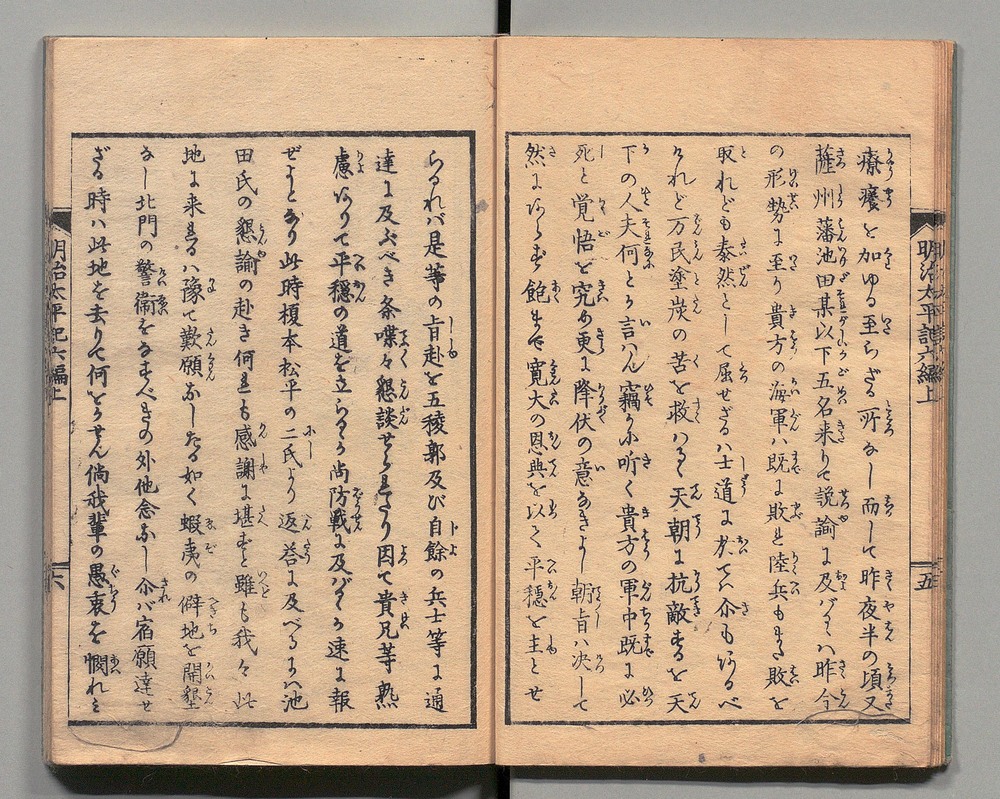 療養を加ゆる至らざる所なし而して昨夜半の頃又
薩州藩池田某以下五名来りて説諭に及バるゝハ昨今
の形勢に至り貴方の海軍ハ既に敗れ陸兵もまた敗を
取れども泰然として屈せざるハ士道に於てハ尓もあるべ
けれど万民塗炭の苦を救ハるゝ天朝に抗敵するを天
下の人夫何とか言ハん竊かに听く貴方の軍中既に必
死と覚悟を究め更に降伏の意なきよし朝旨ハ決して
然にあらず飽まで寛大の恩典を以て平穏を主とせ
明治太平記六編上
五
らるれバ是等の旨趣を五稜郭及び自餘の兵士等に通
達に及ぶべき条喋々懇談せられたり因て貴兄等熟
慮ありて平穏の道を立らるゝか尚防戦に及バるゝか速に報
ぜよとあり此時榎本松平の二氏より返答に及べるにハ池
田氏の懇諭の赴き何れも感謝に堪ずと雖も我々此
地に来れるハ豫て歎願なしたる如く蝦夷の僻地を開墾
なし北門の警衛をなすべきの外他念なし尓バ宿願達せ
ざる時ハ此地を去りて何とかせん倘我輩の愚衷を憫れミ
明治太平記六編上
六